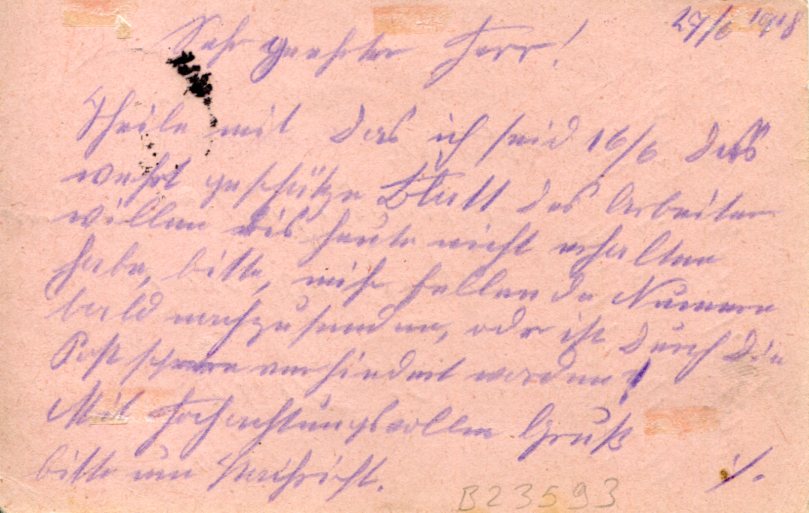 27/6 1918
Sehr geehrter Herr!
Theile mit das ich seid 16/6 das
wehrt geschätze Blatt des Arbeiter
willen bis heute nicht erhalten
habe, bitte, mir fellende Numern
bald nachzusenden, oder ist durch die
Post sperre verhindert worden!
Mit Hochachtungsvollen Gruß
bitte um Nachricht.
B23593